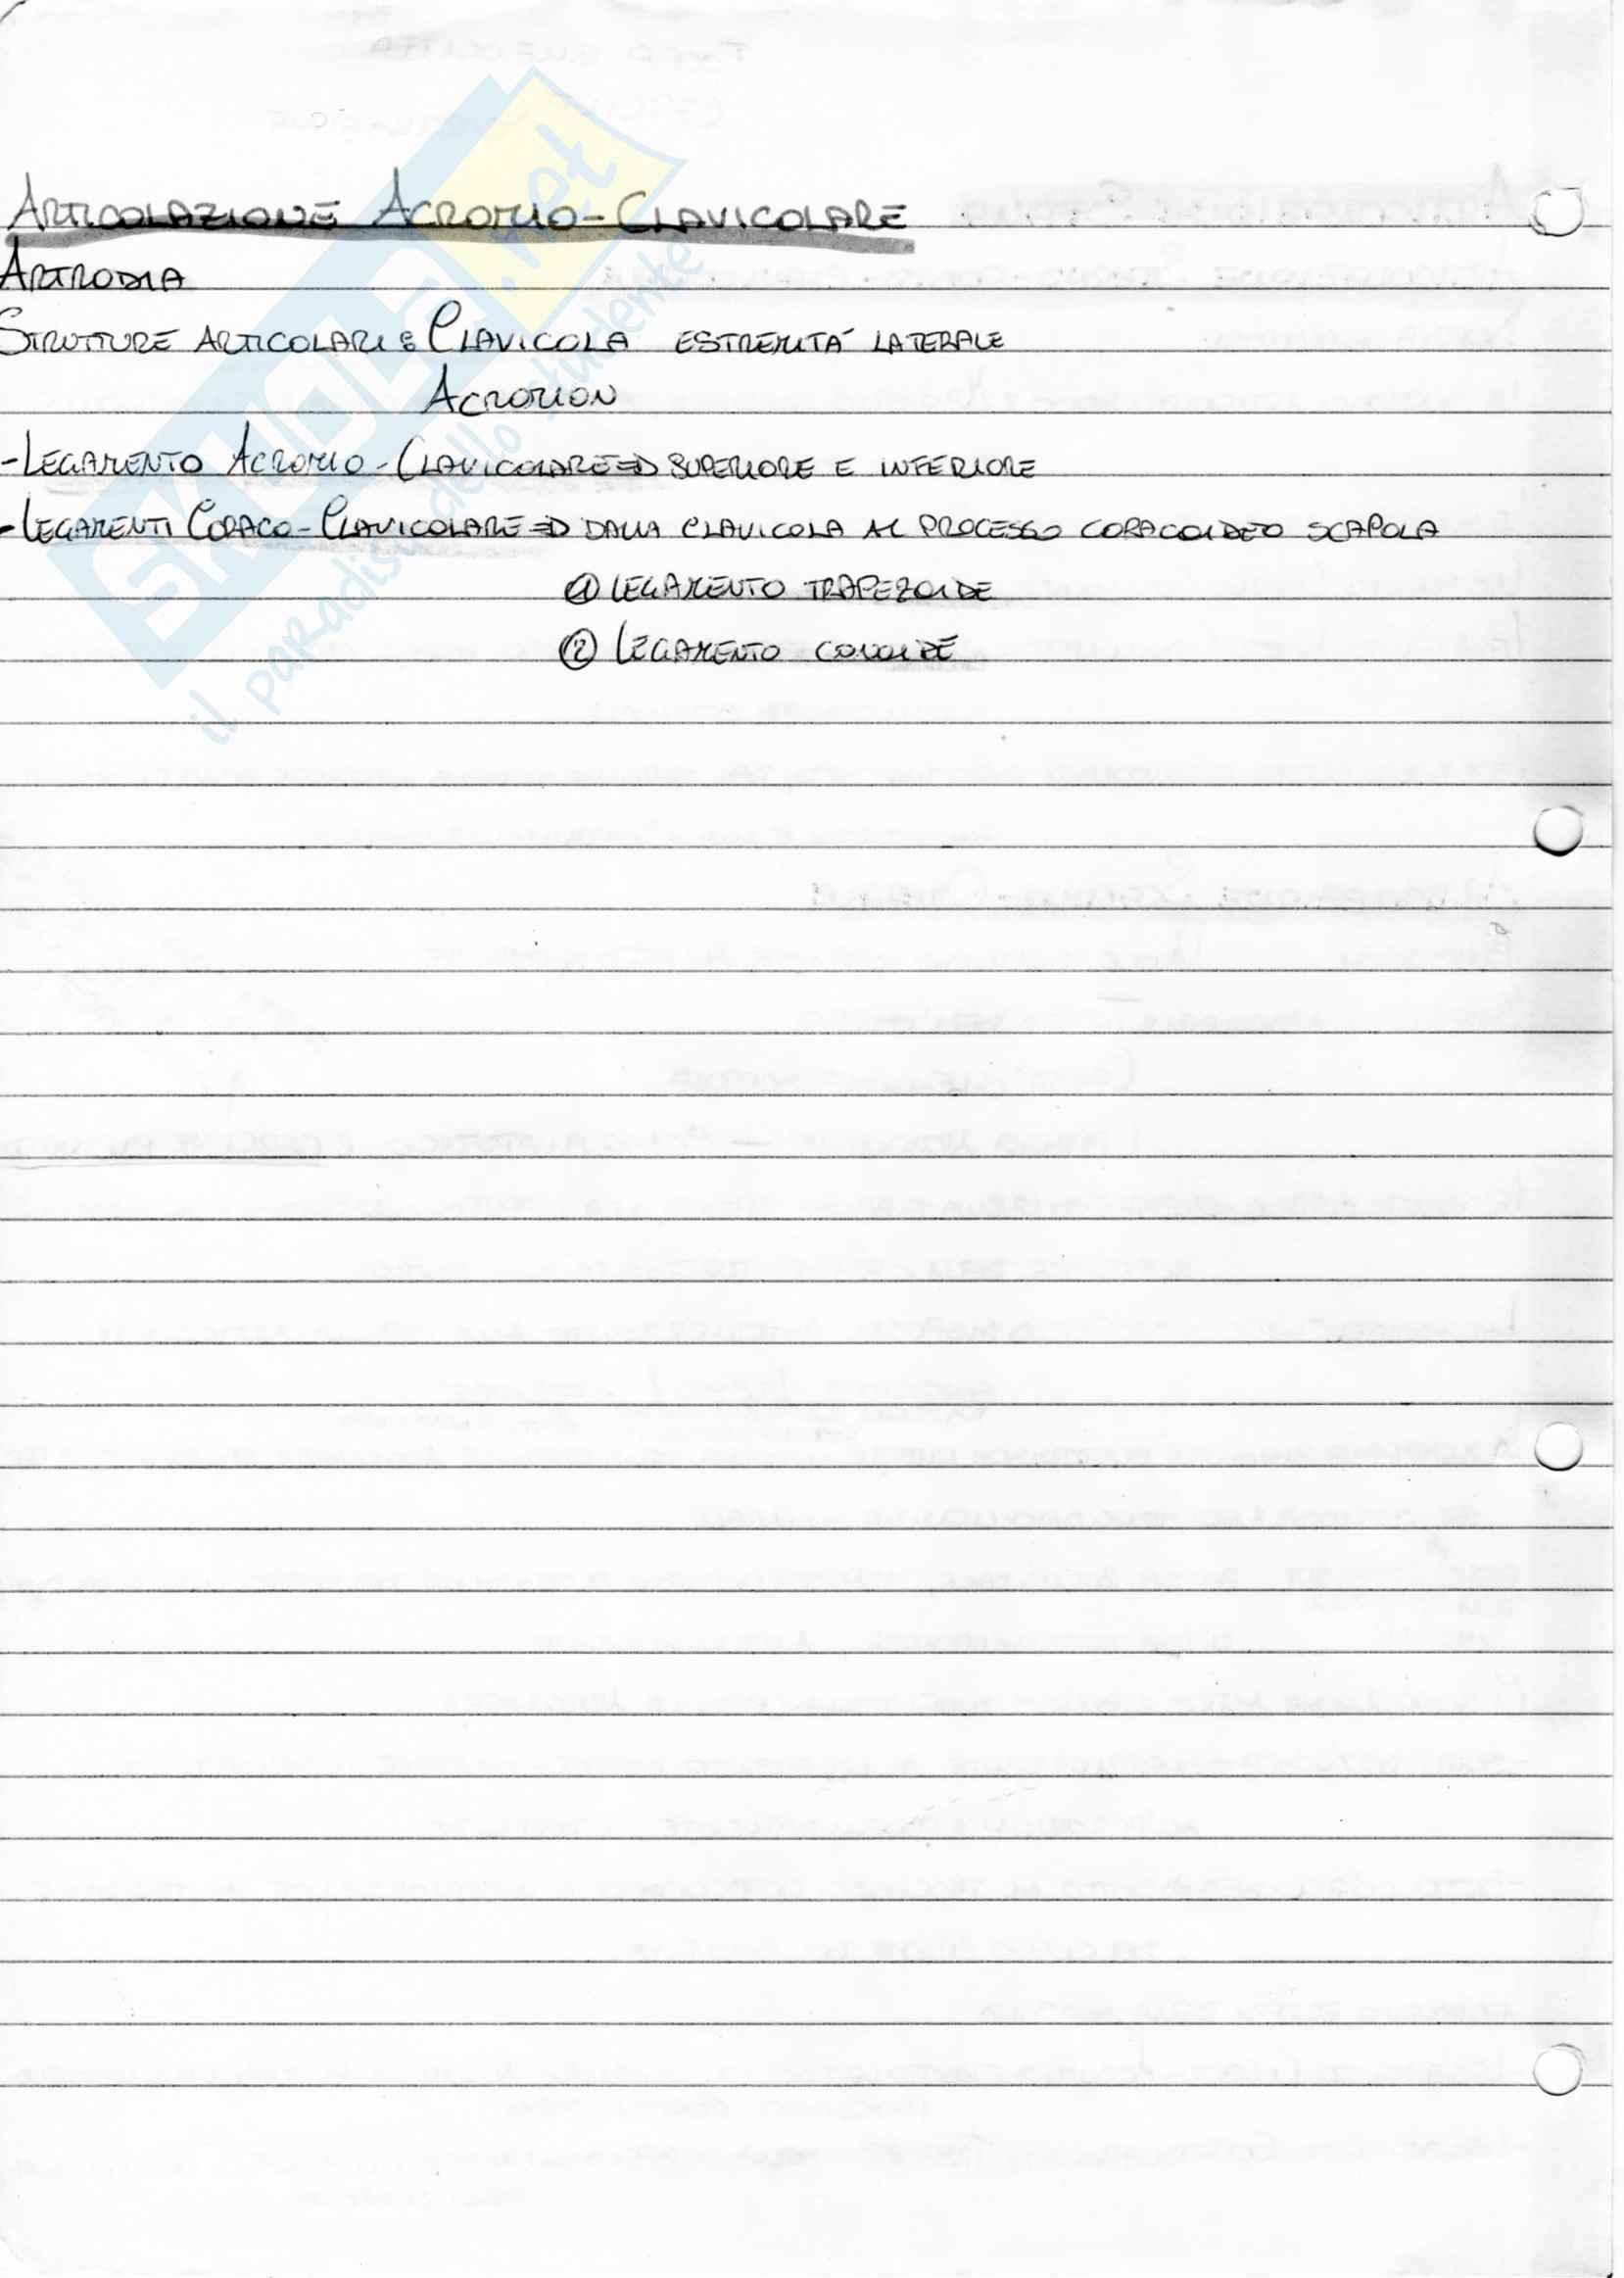 ARTICOLAZIONE ACROMIO-CLAVICOLARE
ARTRODIA
STRUTTURE ARTICOLARI: CLAVICOLA ESTREMITÀ LATERALE
ACROMION
-LEGAMENTO ACROMIO-CLAVICOLARE => SUPERIORE E INFERIORE
-LEGAMENTI CORACO-CLAVICOLARE => DALLA CLAVICOLA AL PROCESSO CORACOIDEO SCAPOLA
① LEGAMENTO TRAPEZOIDE
② LEGAMENTO CONOIDE
SKUOLA.net
il paradiso dello studente